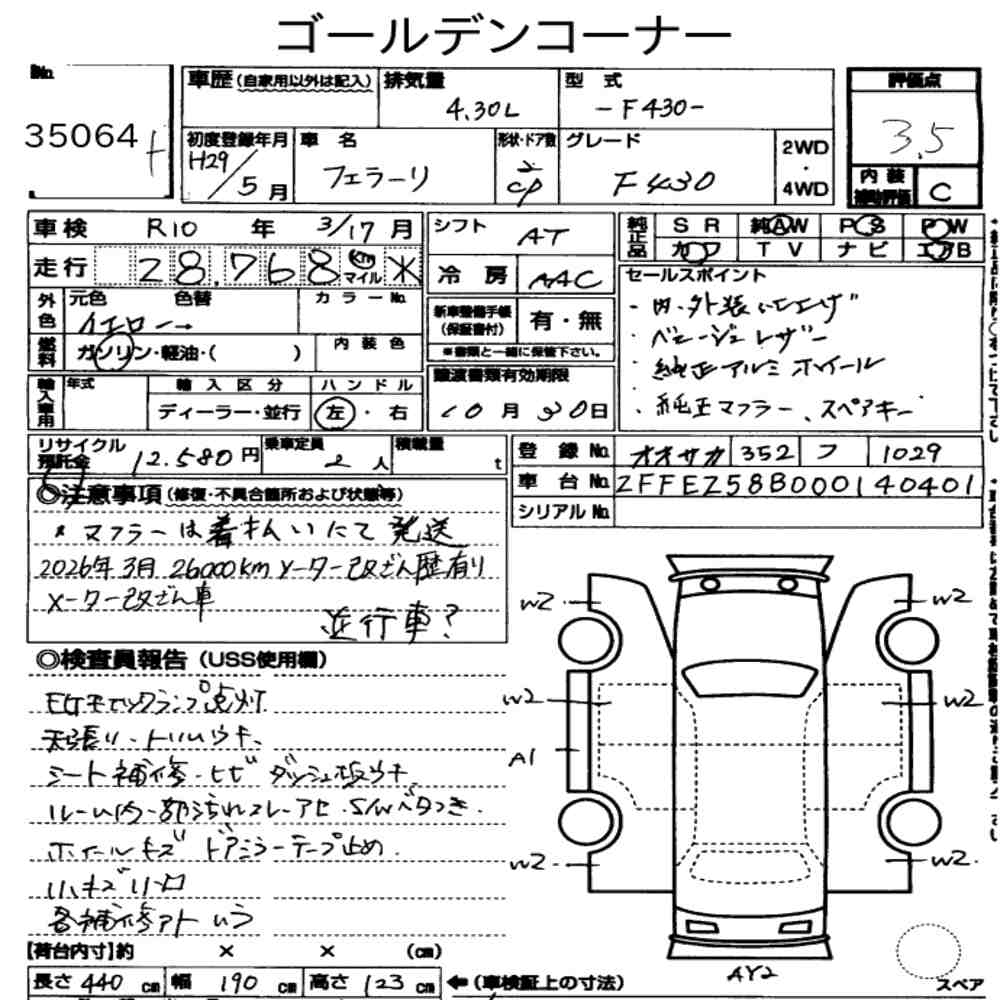 ゴールデンコーナー
No.
35064
車歴(自家用以外は記入) 排気量 型式
4.30L -F430-
評価点
3.5
初度登録年月 車名 形状・ドア数 グレード 2WD・4WD
H29/5月 フェラーリ 2 cp F430
内装補助評価 C
車検 R10年 3/17月 シフト AT
純正品 SR 純AW PS PW
カワ TV ナビ エアB
走行 28,768 km マイル * 冷房 AAC
外色 元色 色替 カラーNo.
イエロー→
新車整備手帳(保証書付) 有・無
※書類と一緒に保管下さい。
燃料 ガソリン・軽油・( ) 内装色
セールスポイント
・内・外装
・ベージュレザー
・純正アルミホイール
・純正マフラー、スペアキー
輸入車用 年式 輸入区分 ハンドル
ディーラー・並行 左・右
譲渡書類有効期限
10月30日
リサイクル預託金 12.580円 乗車定員 2人 積載量 t
登録No. オオサカ 352 フ 1029
車台No. ZFFEZ58B000140401
シリアルNo.
◎注意事項(修復・不具合箇所および状態等)
* マフラーは着払いにて発送
2026年3月 26000km メーター改ざん歴有り
メーター改ざん車
並行車?
◎検査員報告(USS使用欄)
EGチェックランプ点灯
天張り・トリムウキ、
シート補修・ヒビ ダッシュ板ウキ
ルーム内一部汚れスレアセ・S/Wベタつき.
ホイールキズ ドアミラーテープ止め.
小キズ小凹
各補修アト ムラ
W2 W2
W2 W2
A1
W2 W2
AY2
スペア
【荷台内寸】約 × × (cm)
長さ 440 cm 幅 190 cm 高さ 123 cm ←(車検証上の寸法)